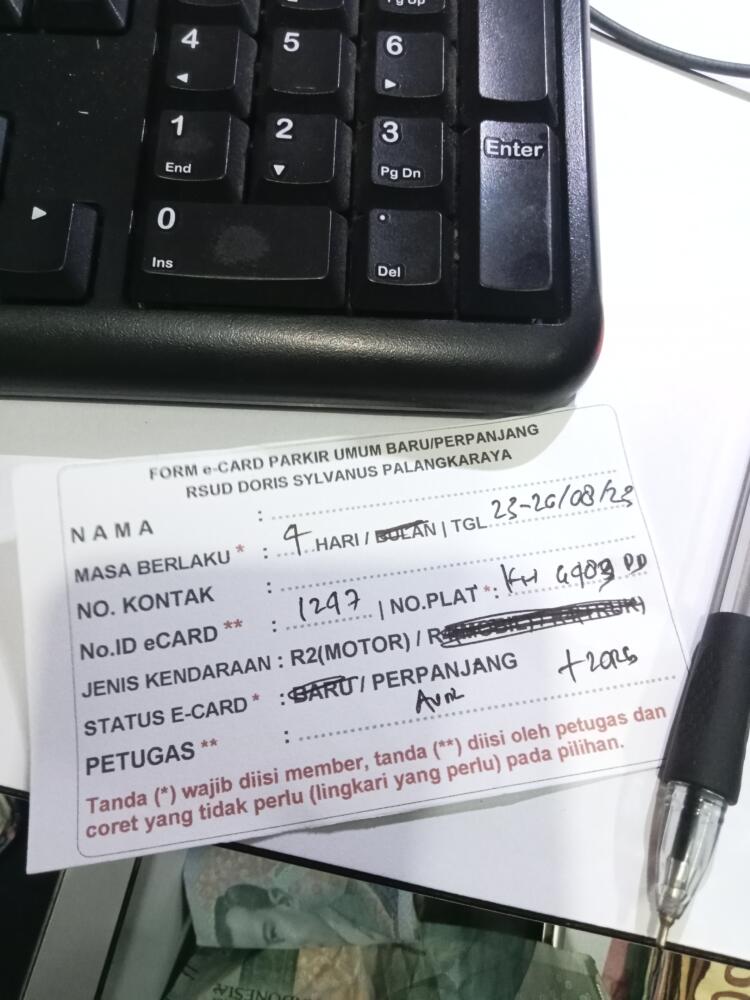 Pg Up
4 5 6
1 2 3 Enter
End Pg Dn
0 .
Ins Del
FORM e-CARD PARKIR UMUM BARU/PERPANJANG
RSUD DORIS SYLVANUS PALANGKARAYA
NAMA :
MASA BERLAKU * : 4 HARI / BULAN | TGL 23-26/08/23
NO. KONTAK :
No.ID eCARD ** : 1297 | NO.PLAT *: KH
JENIS KENDARAAN : R2(MOTOR) /
STATUS E-CARD * : BARU / PERPANJANG
PETUGAS ** :
Tanda (*) wajib diisi member, tanda (**) diisi oleh petugas dan
coret yang tidak perlu (lingkari yang perlu) pada pilihan.